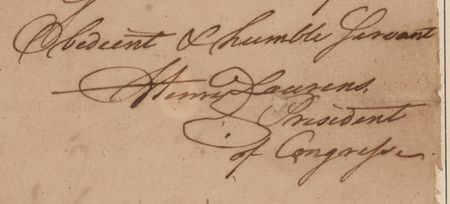 Obedient & humble Servant
Henry Laurens.
President
of Congress.